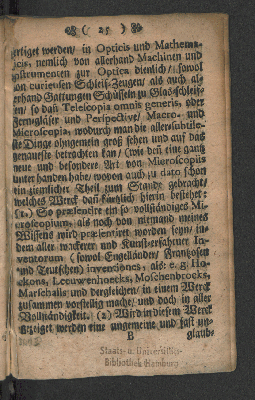 ( 25 )
fertiget werden/ in Opticis und Mathema-
ticis, nemlich von allerhand Machinen und
Instrumenten zur Optica dienlich/ sowol
von curieusen Schleiff-Zeugen/ als auch al-
lerhand Gattungen Schüsseln zu Glas-schleif-
fen/ so daß Telescopia omnis generis, oder
Ferngläser und Perspective/ Macro- und
Microscopia, wodurch man die allersubtile-
ste Dinge ohngemein groß sehen und auf das
genaueste betrachten kan/ (wie deñ eine gantz
neue und besondere Art von Microscopiis
unter handen habe/ wovon auch zu dato schon
ein ziemlicher Theil zum Stande gebracht/
welches Werck dañ kürtzlich hierin bestehet:
(1.) So præsentire ein so vollständiges Mi-
croscopium, als noch von niemand meines
Wissens wird præsentiret worden seyn/ in-
dem aller wackerer und Kunst-erfahrner In-
ventorum (sowol Engelländer/ Frantzosen
und Teutschen) inventiones, als: e. g. Ho-
ckens, Leeuwenhoecks, Moschenbrocks,
Marschalls und dergleichen/ in einem Werck
zusammen vorstellig mache/ und doch in aller
Vollständigkeit. (2.) Wird in diesem Werck
gezeiget werden eine ungemeine und fast un-
B
glaub-
Staats- u. Universitäts-
Bibliothek Hamburg